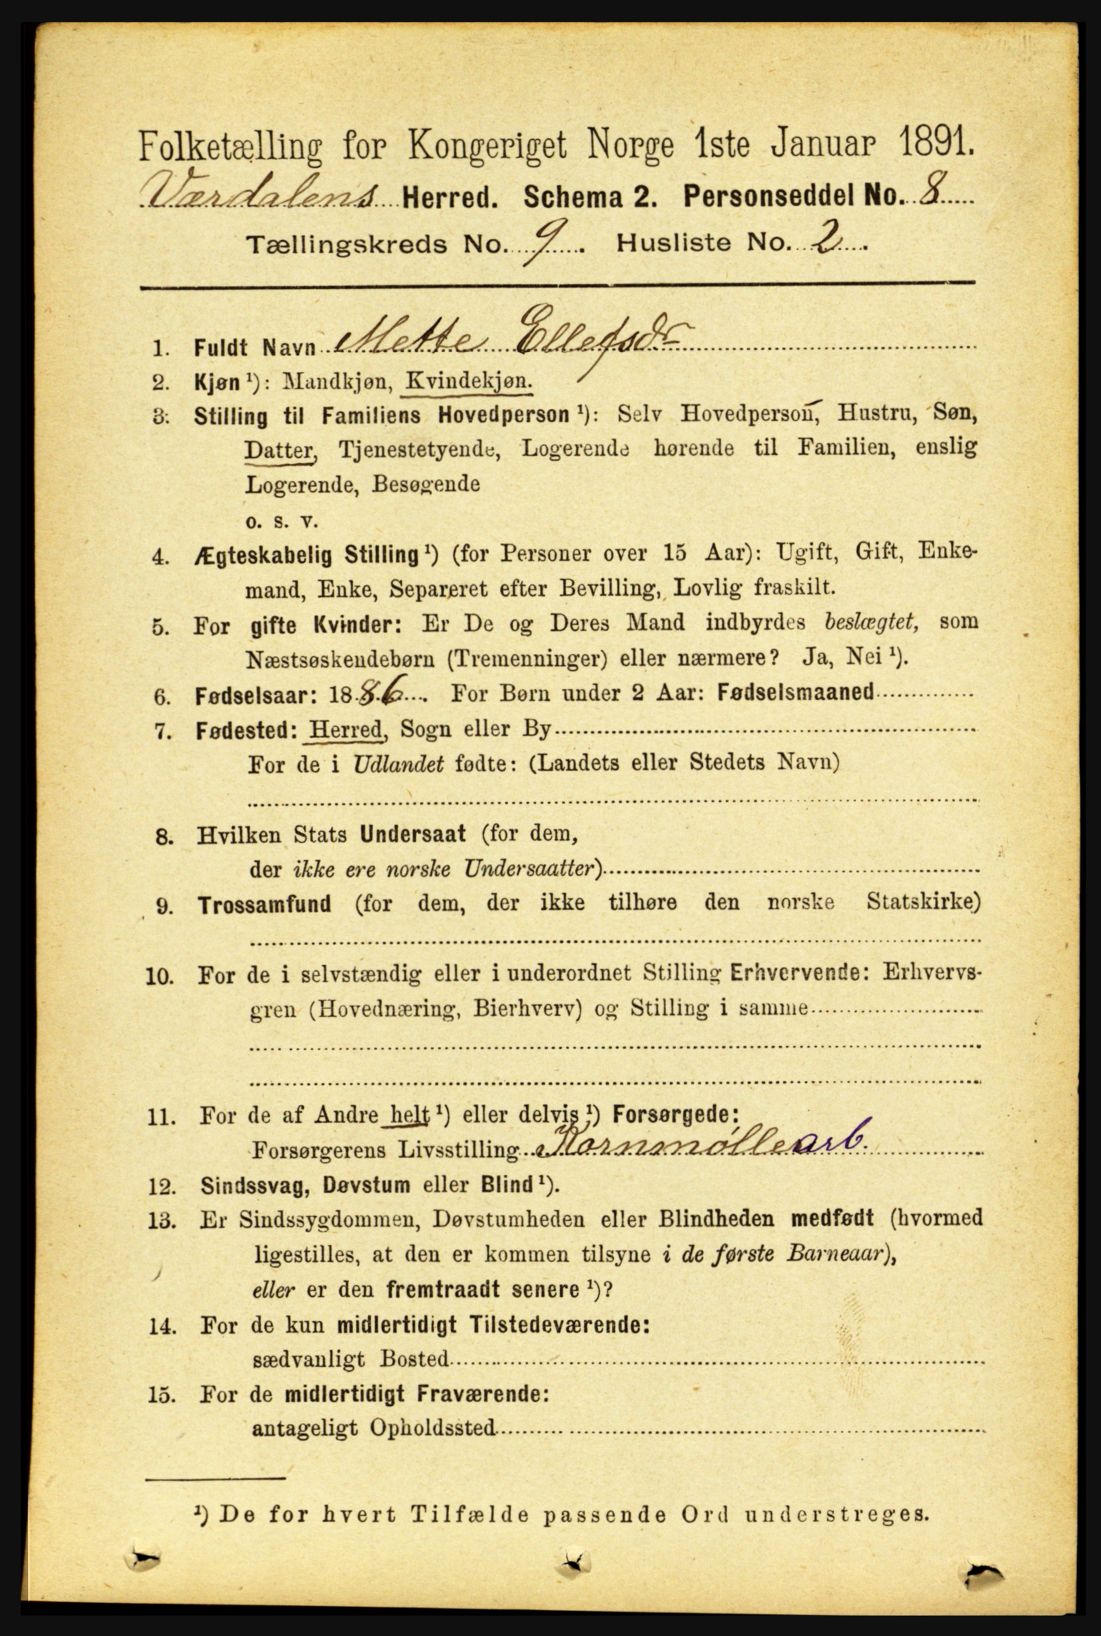 Folketælling for Kongeriget Norge 1ste Januar 1891.
Værdalens Herred. Schema 2. Personseddel No. 8
Tællingskreds No. 9. Husliste No. 2.
1. Fuldt Navn Mette Ellefsdr
2. Kjøn ¹): Mandkjøn, Kvindekjøn.
3. Stilling til Familiens Hovedperson ¹): Selv Hovedperson, Hustru, Søn,
Datter, Tjenestetyende, Logerende hørende til Familien, enslig
Logerende, Besøgende
o. s. v.
4. Ægteskabelig Stilling ¹) (for Personer over 15 Aar): Ugift, Gift, Enke-
mand, Enke, Separeret efter Bevilling, Lovlig fraskilt.
5. For gifte Kvinder: Er De og Deres Mand indbyrdes beslægtet, som
Næstsøskendebørn (Tremenninger) eller nærmere? Ja, Nei ¹).
6. Fødselsaar: 1886. For Børn under 2 Aar: Fødselsmaaned
7. Fødested: Herred, Sogn eller By
For de i Udlandet fødte: (Landets eller Stedets Navn)
8. Hvilken Stats Undersaat (for dem,
der ikke ere norske Undersaatter)
9. Trossamfund (for dem, der ikke tilhøre den norske Statskirke)
10. For de i selvstændig eller i underordnet Stilling Erhvervende: Erhvervs-
gren (Hovednæring, Bierhverv) og Stilling i samme
11. For de af Andre helt ¹) eller delvis ¹) Forsørgede:
Forsørgerens Livsstilling Kornmøllearb.
12. Sindssvag, Døvstum eller Blind ¹).
13. Er Sindssygdommen, Døvstumheden eller Blindheden medfødt (hvormed
ligestilles, at den er kommen tilsyne i de første Barneaar),
eller er den fremtraadt senere ¹)?
14. For de kun midlertidigt Tilstedeværende:
sædvanligt Bosted
15. For de midlertidigt Fraværende:
antageligt Opholdssted
¹) De for hvert Tilfælde passende Ord understreges.